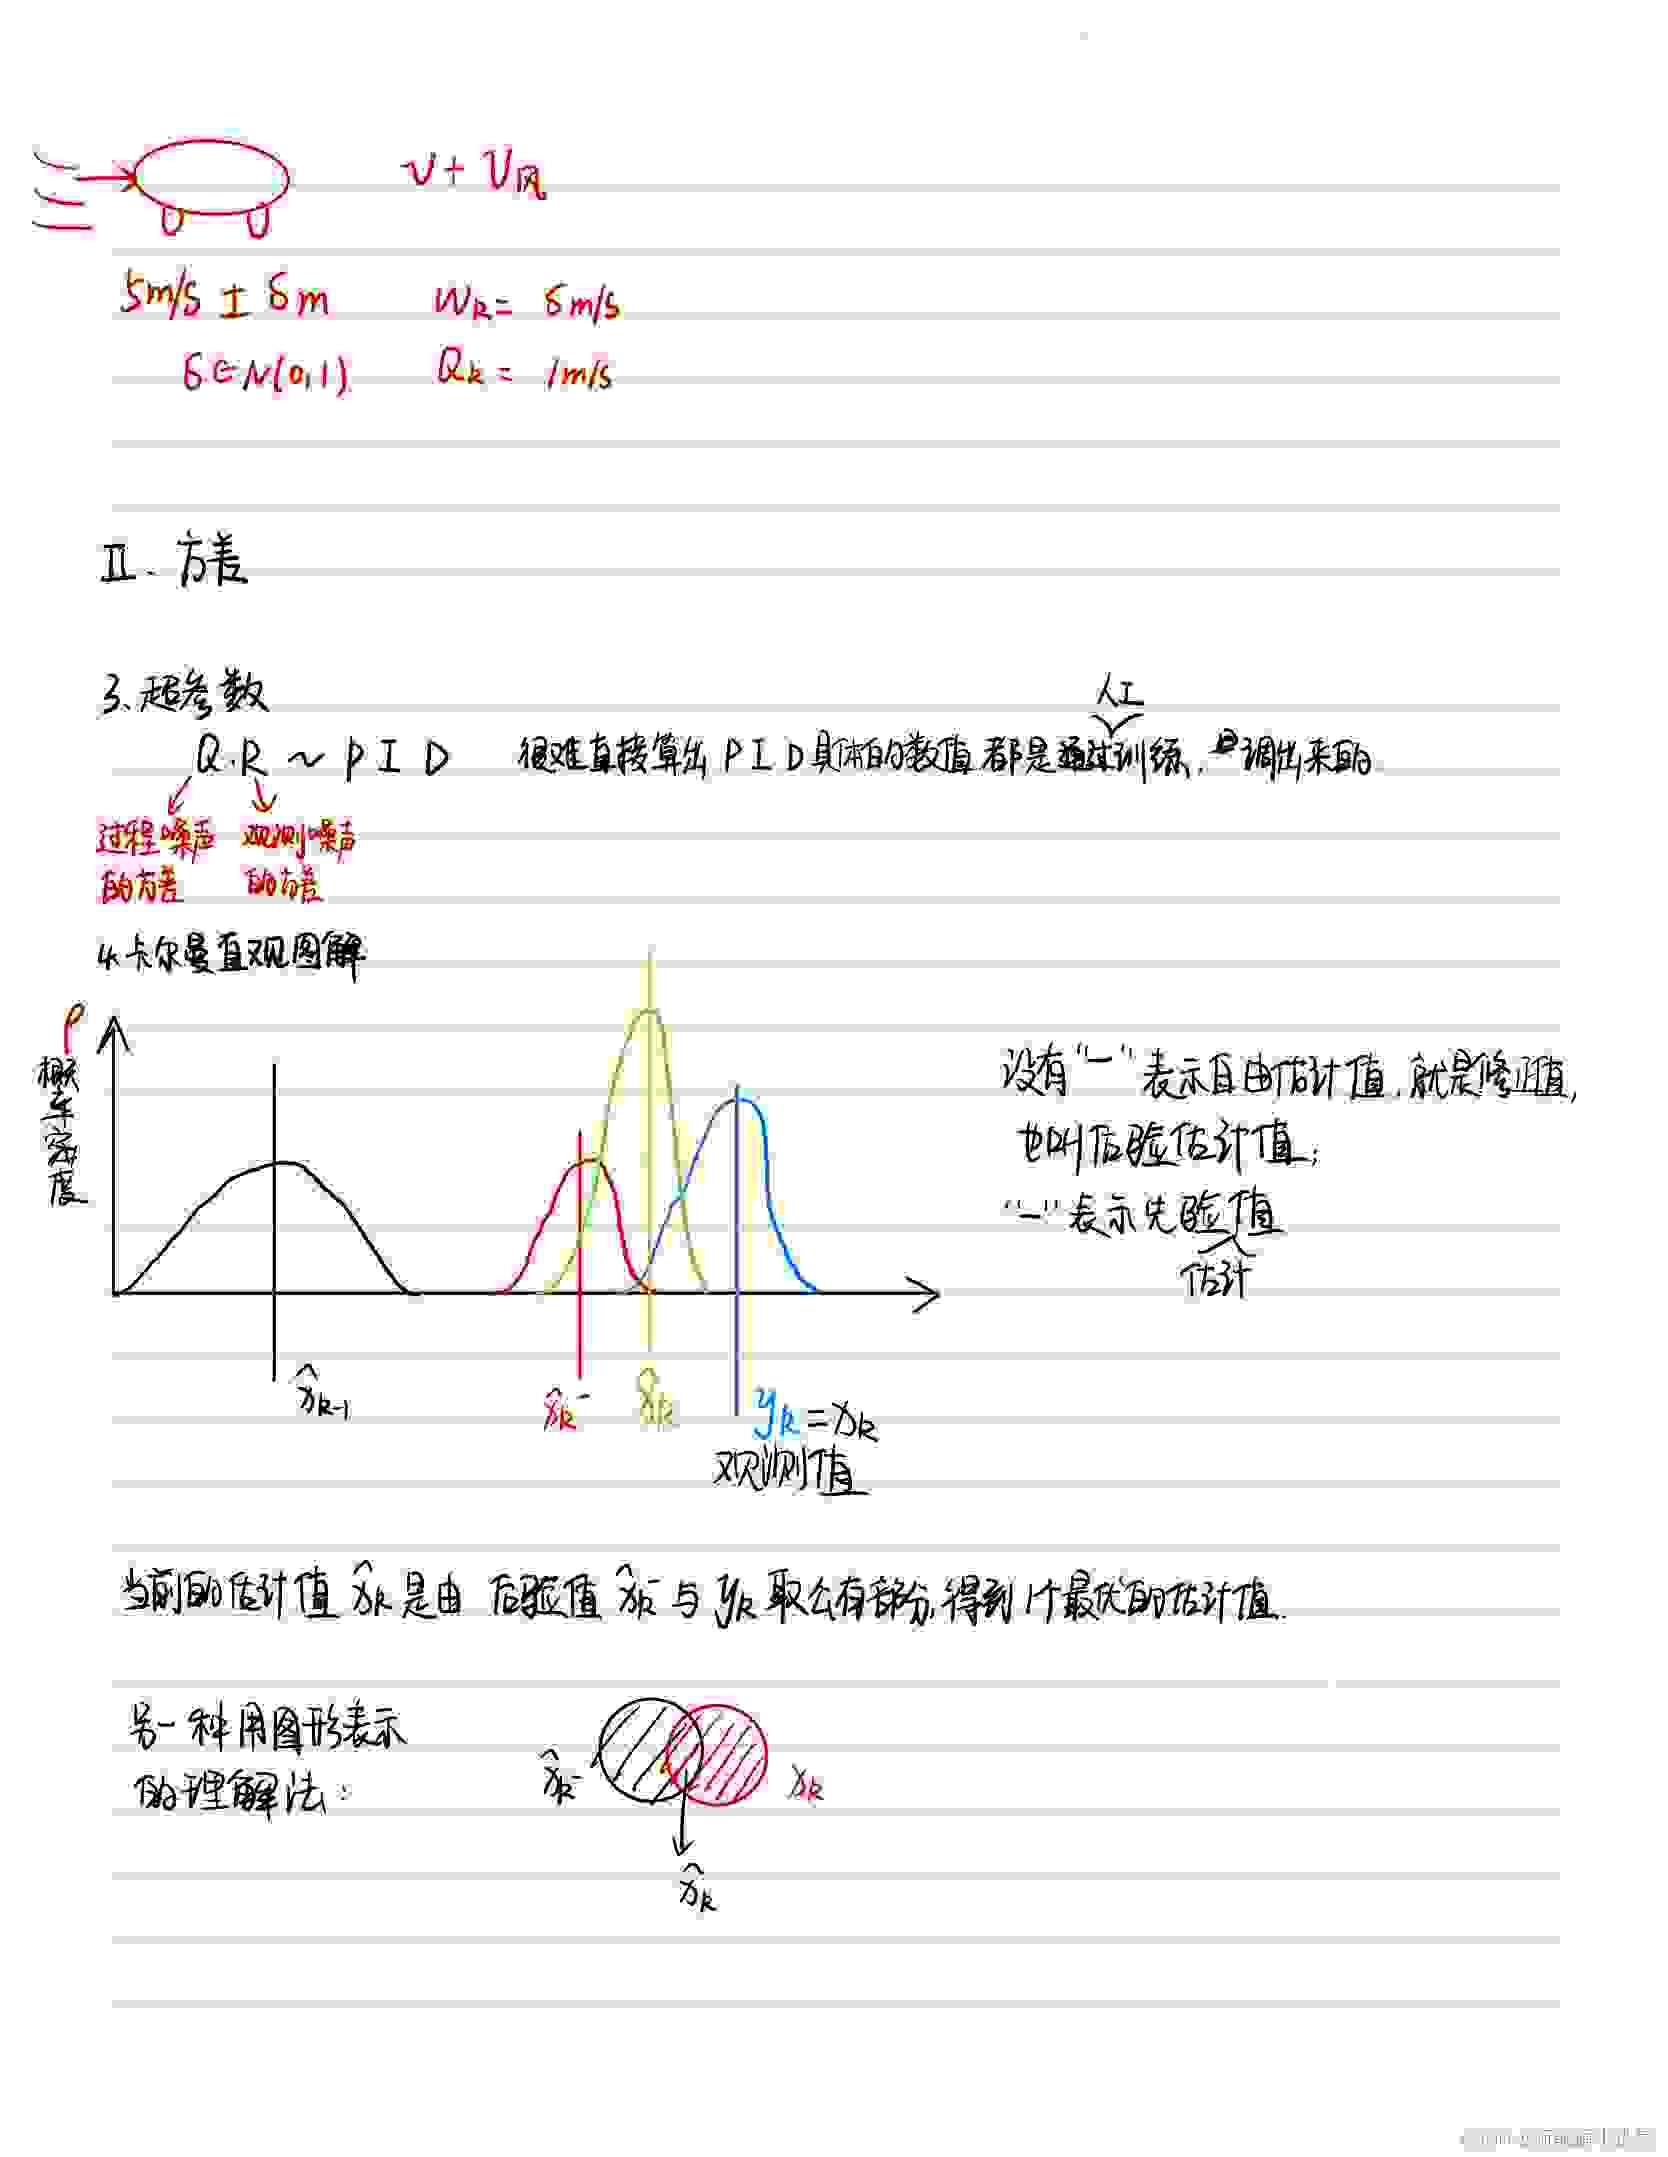 v + v风
5m/s ± δm  W_k = δm/s
δ∈N(0,1)  Q_k = 1m/s
II. 方差
3、超参数
人工
Q.R ~ P I D 很难直接算出 P I D 具体的数值 都是通过训练, 调出来的
过程噪声 观测噪声
的方差 的方差
4.卡尔曼直观图解
P
概率密度
没有“—”表示且由估计值,就是修正值,
也叫后验估计值;
“—”表示先验值
估计
x̂_{k-1}  x̂_k⁻  x̂_k  y_k = x_k
观测值
当前的估计值 x̂_k 是由 后验值 x̂_k⁻ 与 y_k 取公有部分,得到1个最优的估计值.
另一种用图形表示
的理解法:
x̂_k⁻  x_k
x̂_k